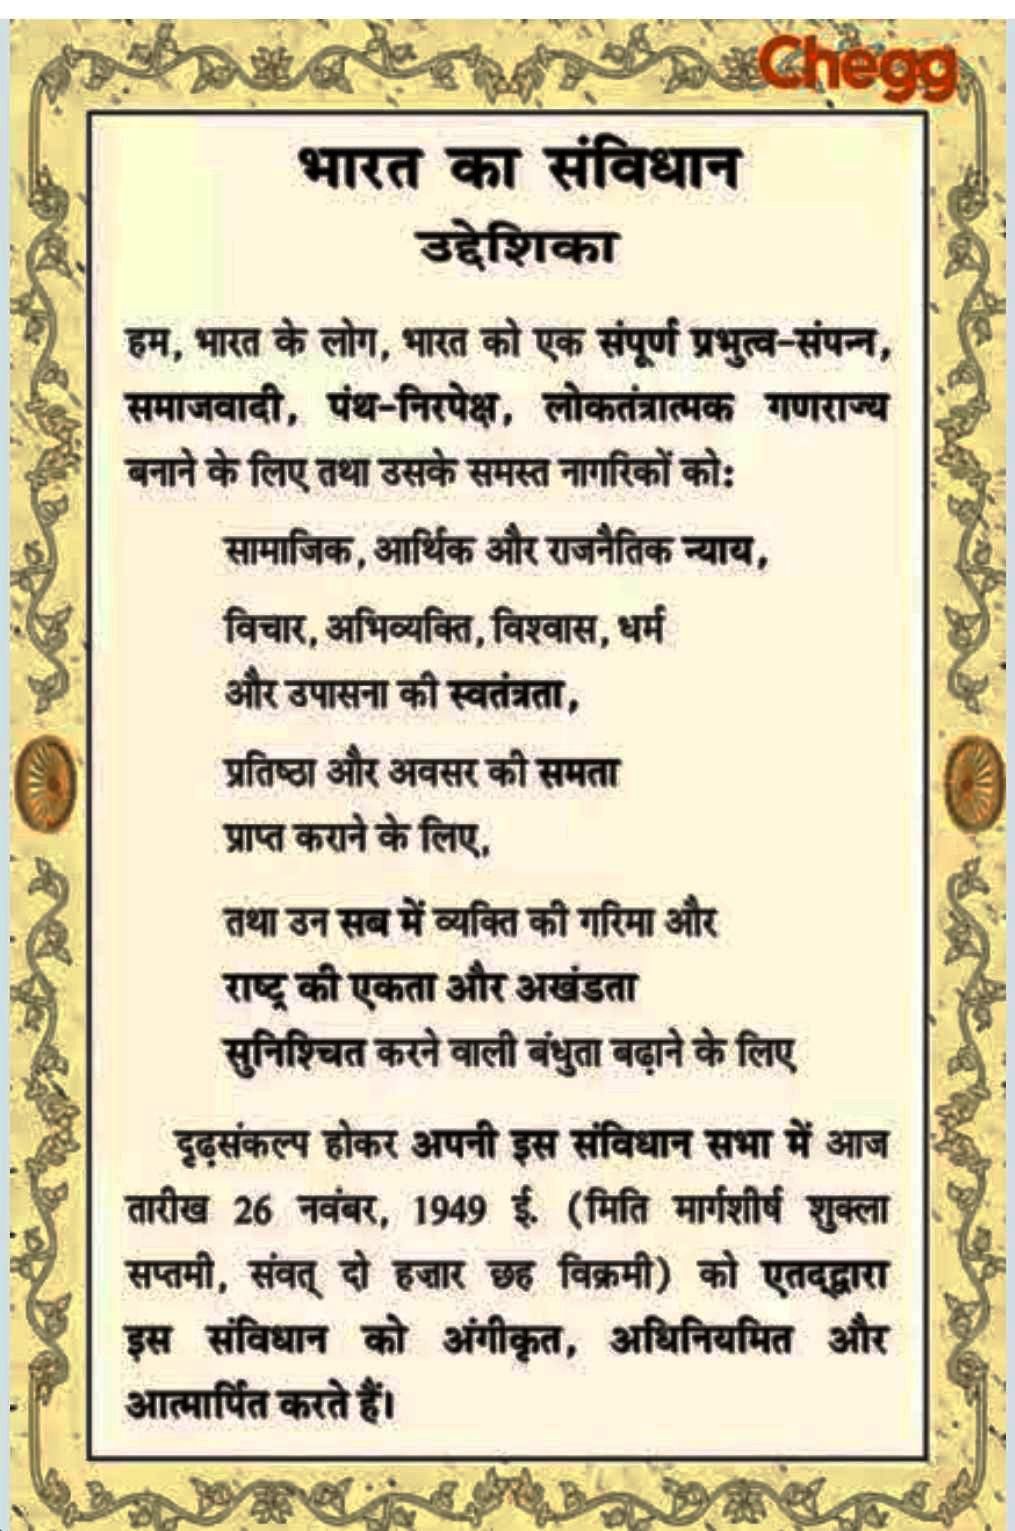 Chegg
भारत का संविधान
उद्देशिका
हम, भारत के लोग, भारत को एक संपूर्ण प्रभुत्व-संपन्न,
समाजवादी, पंथ-निरपेक्ष, लोकतंत्रात्मक गणराज्य
बनाने के लिए तथा उसके समस्त नागरिकों को:
सामाजिक, आर्थिक और राजनैतिक न्याय,
विचार, अभिव्यक्ति, विश्वास, धर्म
और उपासना की स्वतंत्रता,
प्रतिष्ठा और अवसर की समता
प्राप्त कराने के लिए,
तथा उन सब में व्यक्ति की गरिमा और
राष्ट्र की एकता और अखंडता
सुनिश्चित करने वाली बंधुता बढ़ाने के लिए
दृढ़संकल्प होकर अपनी इस संविधान सभा में आज
तारीख 26 नवंबर, 1949 ई. (मिति मार्गशीर्ष शुक्ला
सप्तमी, संवत् दो हज़ार छह विक्रमी) को एतद्द्वारा
इस संविधान को अंगीकृत, अधिनियमित और
आत्मार्पित करते हैं।